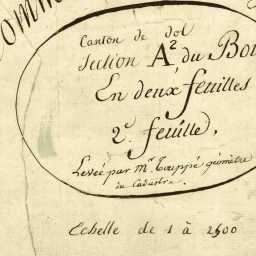 Comm
Canton de dol
Section A², du Bou
En deux feuilles
2.ᵉ feuille,
Levée par M.ʳ Touppé géomètre
du Cadastre.
Echelle de 1 à 2500